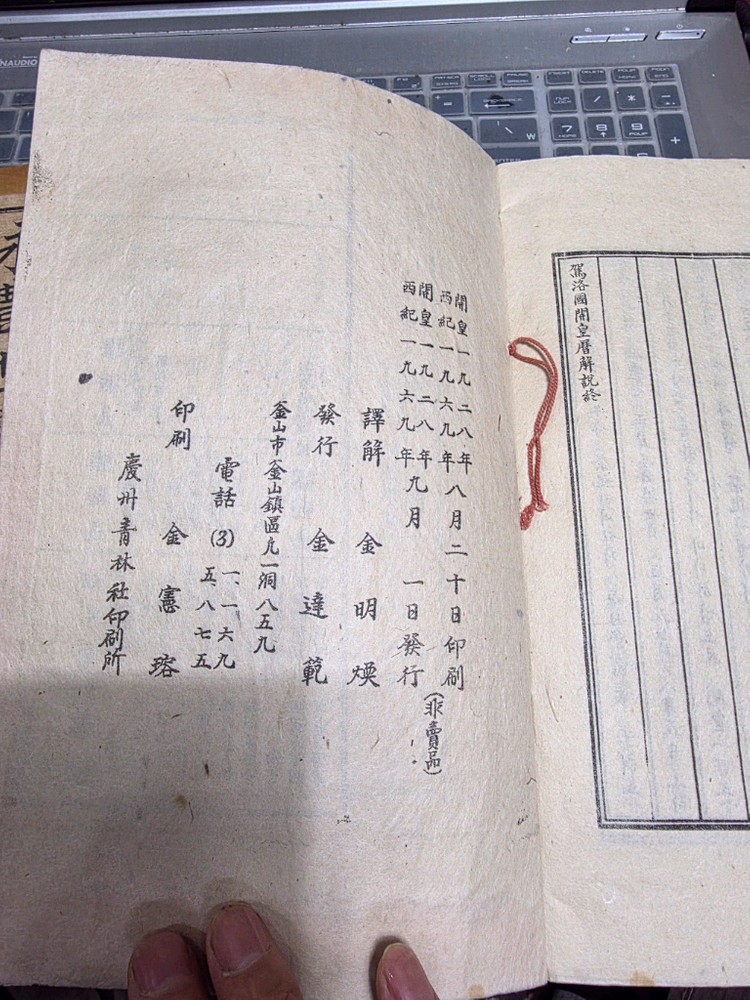 駕洛國開皇曆解說終
開皇一九二八年
西紀一九六九年八月二十日印刷
開皇一九二八年
西紀一九六九年九月 一日發行
(非賣品)
譯解 金明煐
發行 金達範
釜山市釜山鎭區凡一洞八五九
電話(3) 一、一六九
五、八七五
印刷 金憲瑢
慶州青林社印刷所
NUM LOCK / * -
7 HOME 8 9 PGUP +